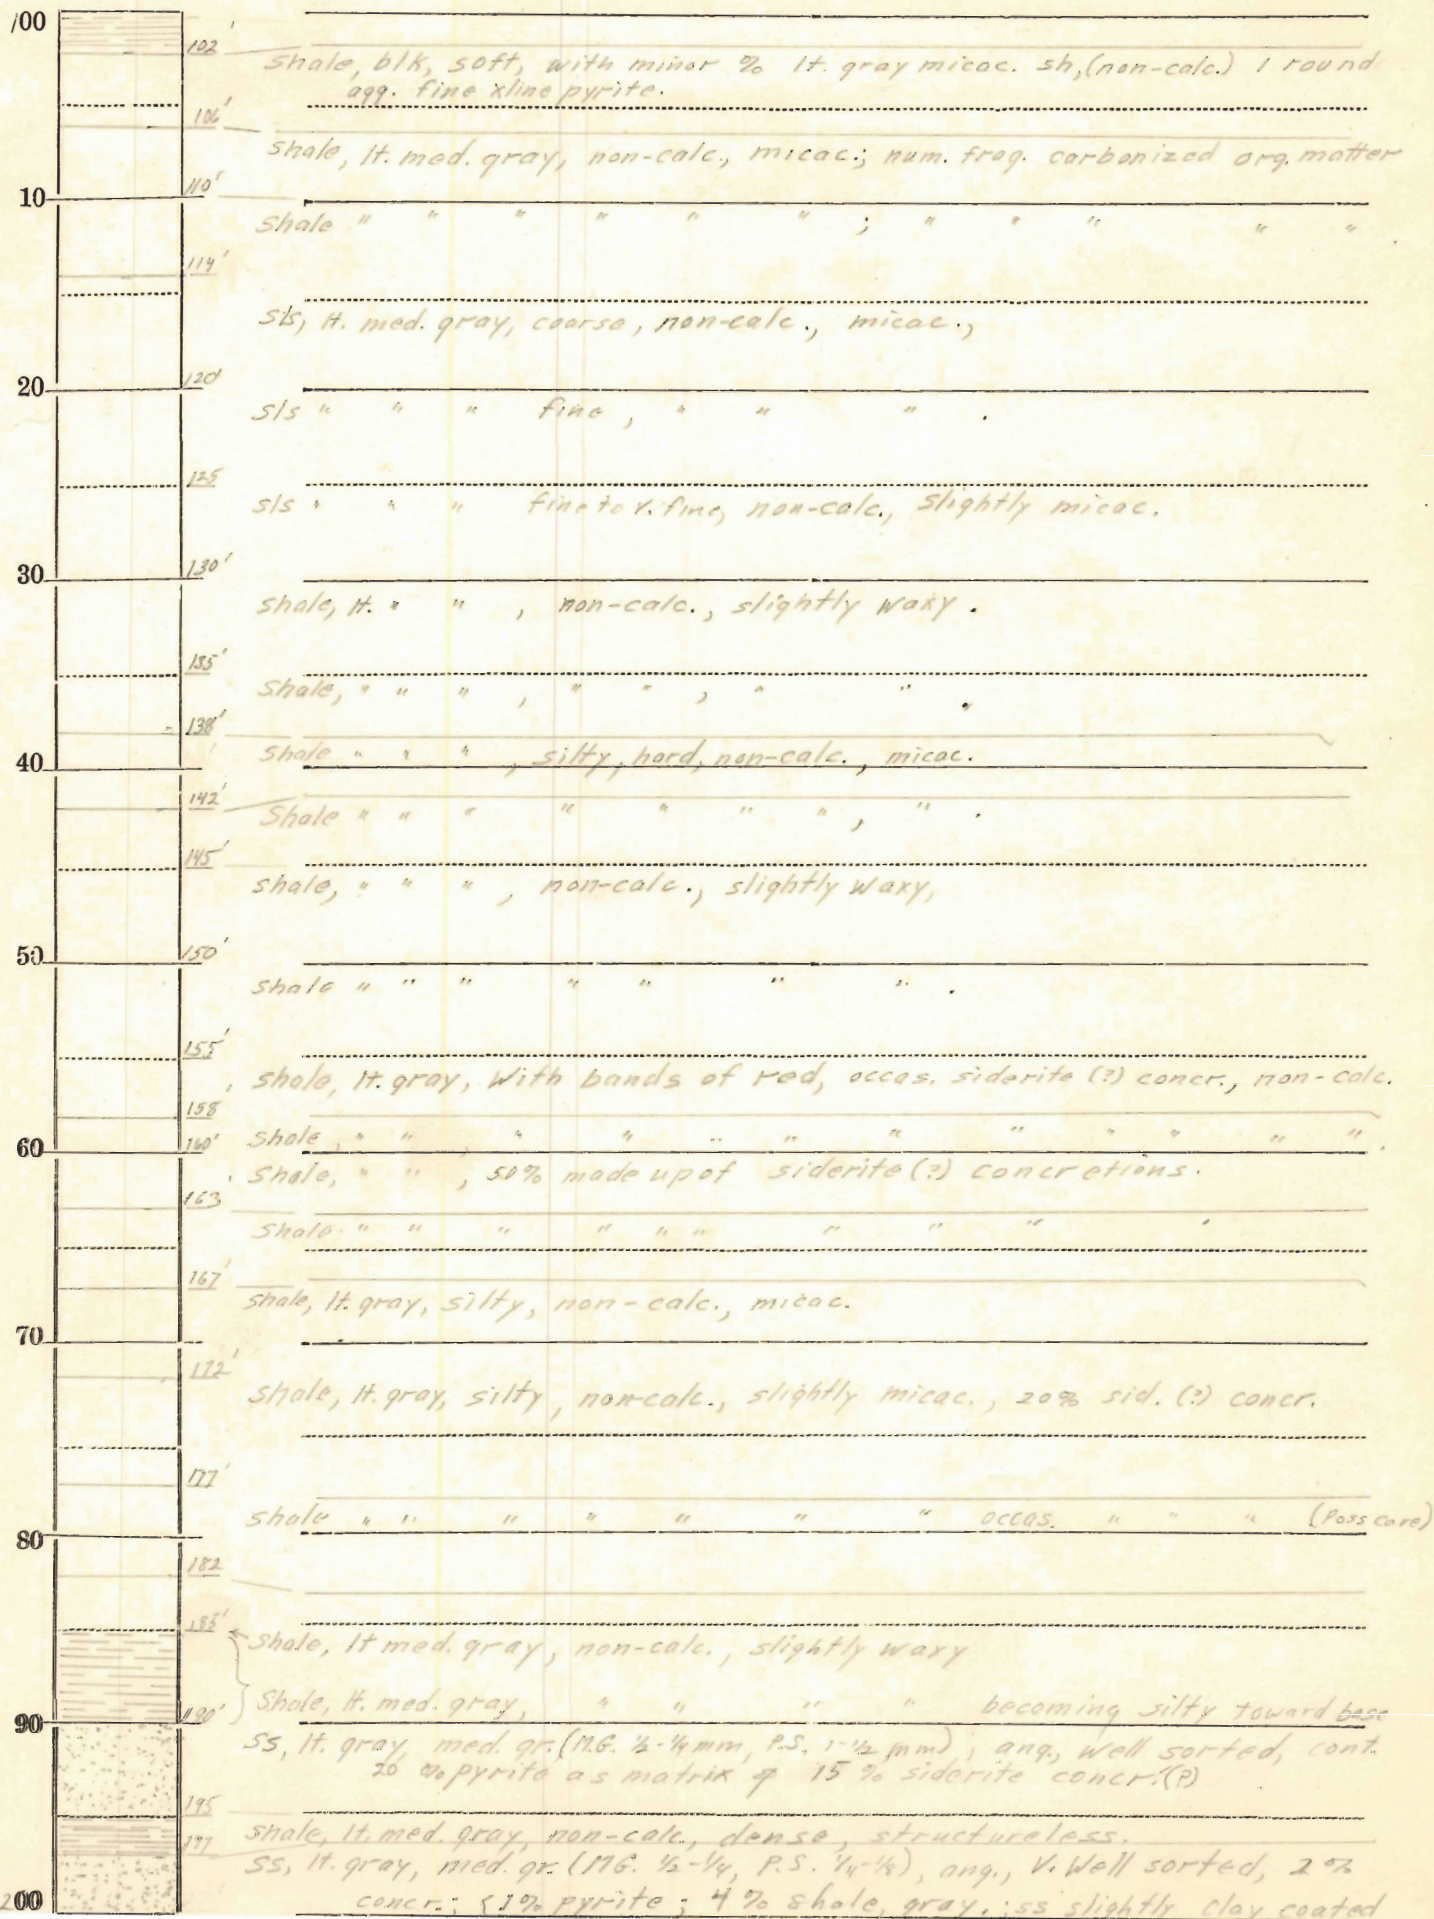 100
102'
Shale, blk, soft, with minor % lt. gray micac. sh, (non-calc.) 1 round
agg. fine xline pyrite.
106'
Shale, lt. med. gray, non-calc., micac.; num. frag. carbonized org. matter
10 110'
Shale " " " " " " ; " " " " " .
114'
sls, lt. med. gray, coarse, non-calc., micac.,
20 120'
sls " " " fine, " " " .
125
sls " " " fine to v. fine, non-calc., slightly micac.
30 130'
shale, lt. " " , non-calc., slightly waxy.
135'
Shale, " " " , " " , " " .
138'
Shale " " " , silty, hard, non-calc., micac.
40
142'
Shale " " " " " " " , " .
145'
shale, " " " , non-calc., slightly waxy,
50 150'
shale " " " " " " " .
155'
shale, lt. gray, with bands of red, occas. siderite (?) concr., non-calc.
158'
Shale, " " " " " " " " " " " " .
60 160'
Shale, " " , 50% made up of siderite (?) concretions.
163
Shale " " " " " " " " " .
167'
shale, lt. gray, silty, non-calc., micac.
70
172'
shale, lt. gray, silty, non-calc., slightly micac., 20% sid. (?) concr.
177'
shale " " " " " " " occas. " " " (Poss cave)
80
182
185'
Shale, lt med. gray, non-calc., slightly waxy
Shale, lt. med. gray, " " " " becoming silty toward base
90 190'
SS, lt. gray, med. gr. (M.G. ½-¼ mm, P.S. 1-½ mm), ang., well sorted, cont.
20 % pyrite as matrix & 15 % siderite concr. (?)
195
shale, lt. med. gray, non-calc., dense, structureless.
197
SS, lt. gray, med. gr. (M.G. ½-¼, P.S. ¼-⅛), ang., V. Well sorted, 2 %
200 concr.; <1% pyrite; 4 % shale, gray.; ss slightly clay coated